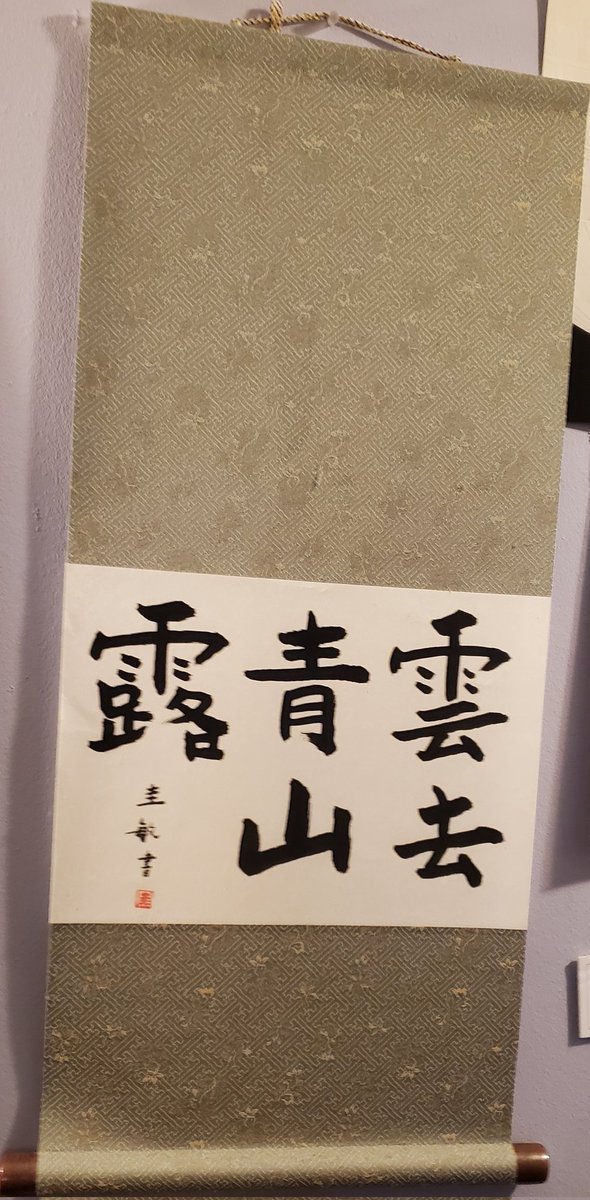 雲去
青山
露
圭敏書